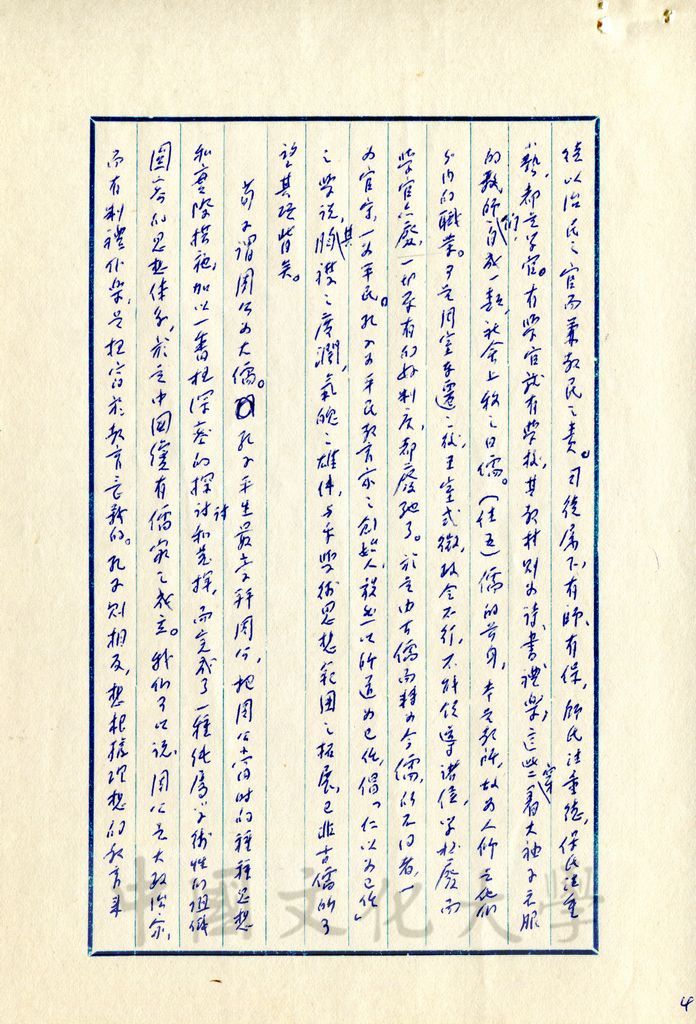 從以治民之官而兼教民之責。司徒屬下，有師，有保，師氏注重德，保氏注重
藝，都立學官。有學官就有學校，其教材則為詩、書、禮、樂，這些穿著大袖子衣服
的教師們自成一類，社會上稱之曰儒。（註五）儒的前身，本是教師，故為人師是他們
分內的職業。可是周室東遷之後，王室式微，政令不行，不能領導諸侯，學校廢而
學官亦廢，一切原有的好制度，都廢弛了。於是由古儒而轉為今儒，所不同者，一
為官家，一為平民。孔子為平民教育家之創始人，毅然以師道為己任，倡「仁以為己任」
之學說，其胸襟之廣濶，氣魄之雄偉，與乎學術思想範圍之拓展，已非古儒所可
望其項背矣。
荀子謂周公為大儒。孔子平生最崇拜周公，把周公當時的種種思想
和實際措施，加以一番極深密的探討和發揮，而完成了一種純屬學術性的組織
圓密的思想體系，於是中國纔有儒家之成立。我們可以說，周公是大政治家，
而有制禮作樂，是把寓於教育意義的。孔子則相反，想根據理想的教育來
4
中國文化大學